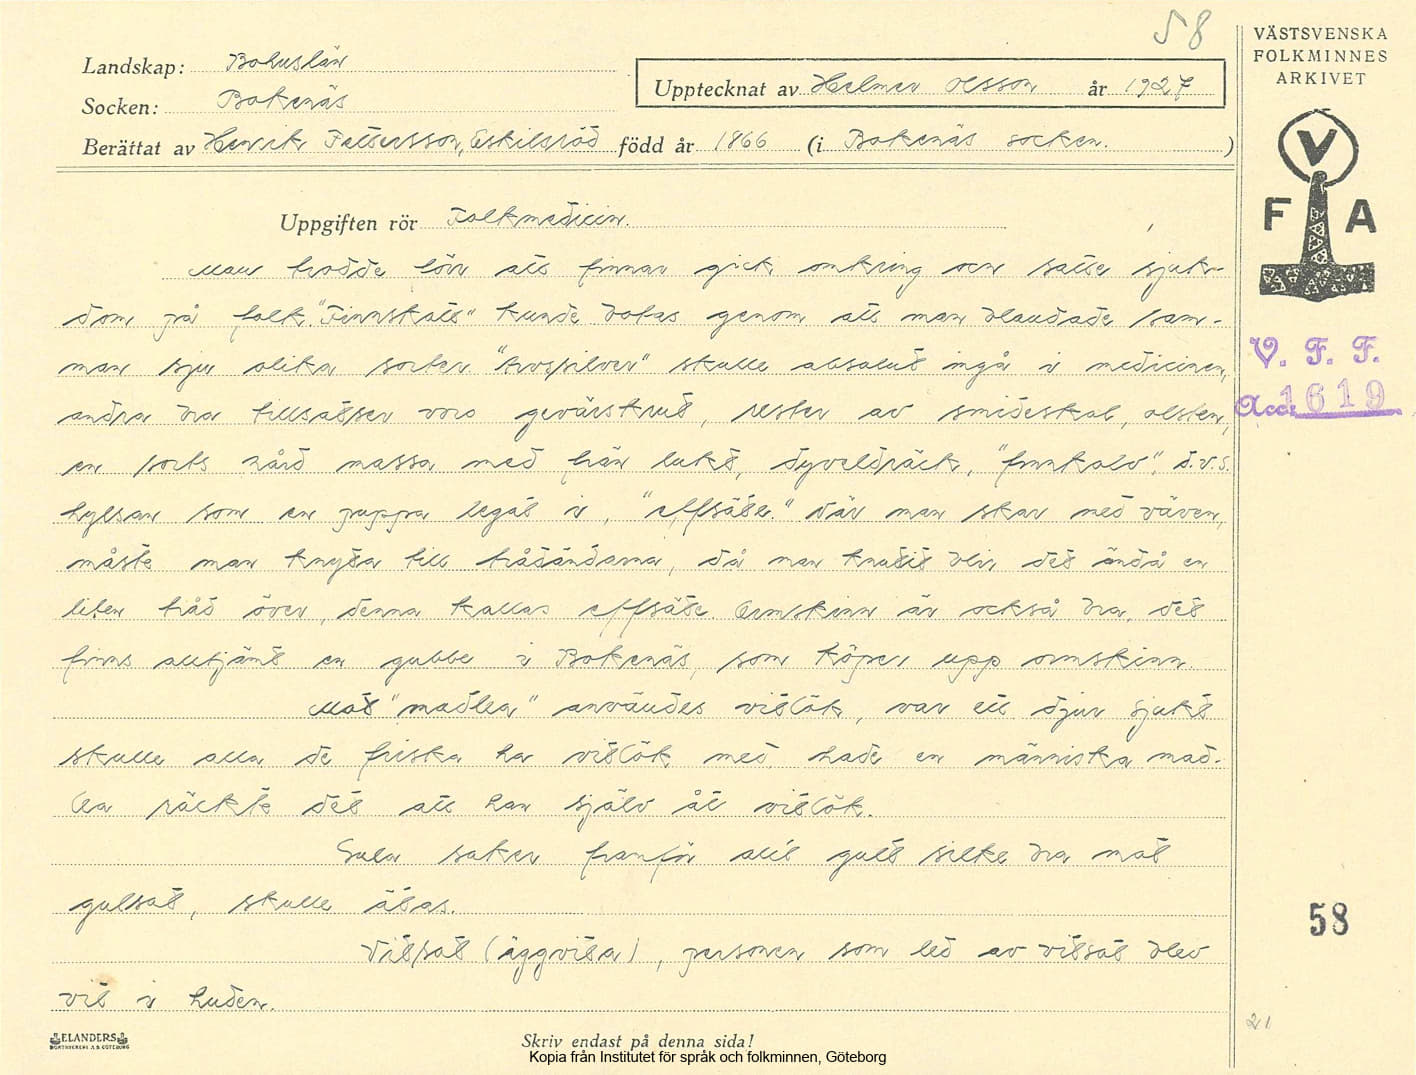 58
VÄSTSVENSKA
FOLKMINNES
ARKIVET
Landskap: Bohuslän
Socken: Bokenäs
Upptecknat av Helmer Olsson år 1927
Berättat av Henrik Pettersson, Eskilsröd född år 1866 (i Bokenäs socken. )
V
F A
Uppgiften rör Folkmedicin.
Man trodde förr att finnar gick omkring och satte sjuk-
dom på folk. "Finnskott" kunde botas genom att man blandade sam-
man sju olika sorter. "Arvsilver" skulle absolut ingå i medicinen,
andra bra tillsatser voro gevärskrut, rester av smideskol, olsten,
en sorts hård massa med frän lukt, dyvelsträck, "finnkalv", d.v.s.
hylsan som en puppa legat i, "effsäte." Där man skar ned väven,
måste man knyta till trådändarna, då man knutit blir det ändå en
liten tråd över, denna kallas effsäte. Ormskinn är också bra, det
finns alltjämt en gubbe i Bokenäs, som köper upp ormskinn.
Mot "madlea" användes vitlök, var ett djur sjukt
skulle alla de friska ha vitlök med hade en människa mad-
lea räckte det att han själv åt vitlök.
Gula saker framför allt gult silke bra mot
gulsot, skulle ätas.
Vitsot (äggvita), personen som led av vitsot blev
vit i huden.
V. F. F.
Acc. 1619
58
21
ELANDERS
BOKTRYCKERI A.B. GÖTEBORG
Skriv endast på denna sida!
Kopia från Institutet för språk och folkminnen, Göteborg